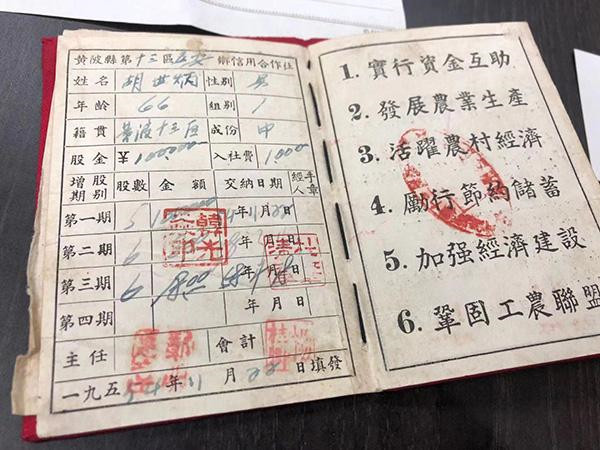 黃陂縣第十三區公安鄉信用合作社
姓名 胡世炳 性別 男
年齡 66 組別 1
籍貫 黃陂十三區 成份 中
股金 ¥1000000 入社費 1000
增股期別 股數 金額 交納日期 經手人章
第一期 5 年 月 日
第二期 6 年 月 日
第三期 6 年 月 日
第四期 年 月 日
主任 會計
一九五54年11月22日填發
1. 實行資金互助
2. 發展農業生產
3. 活躍農村經濟
4. 勵行節約儲蓄
5. 加強經濟建設
6. 鞏固工農聯盟